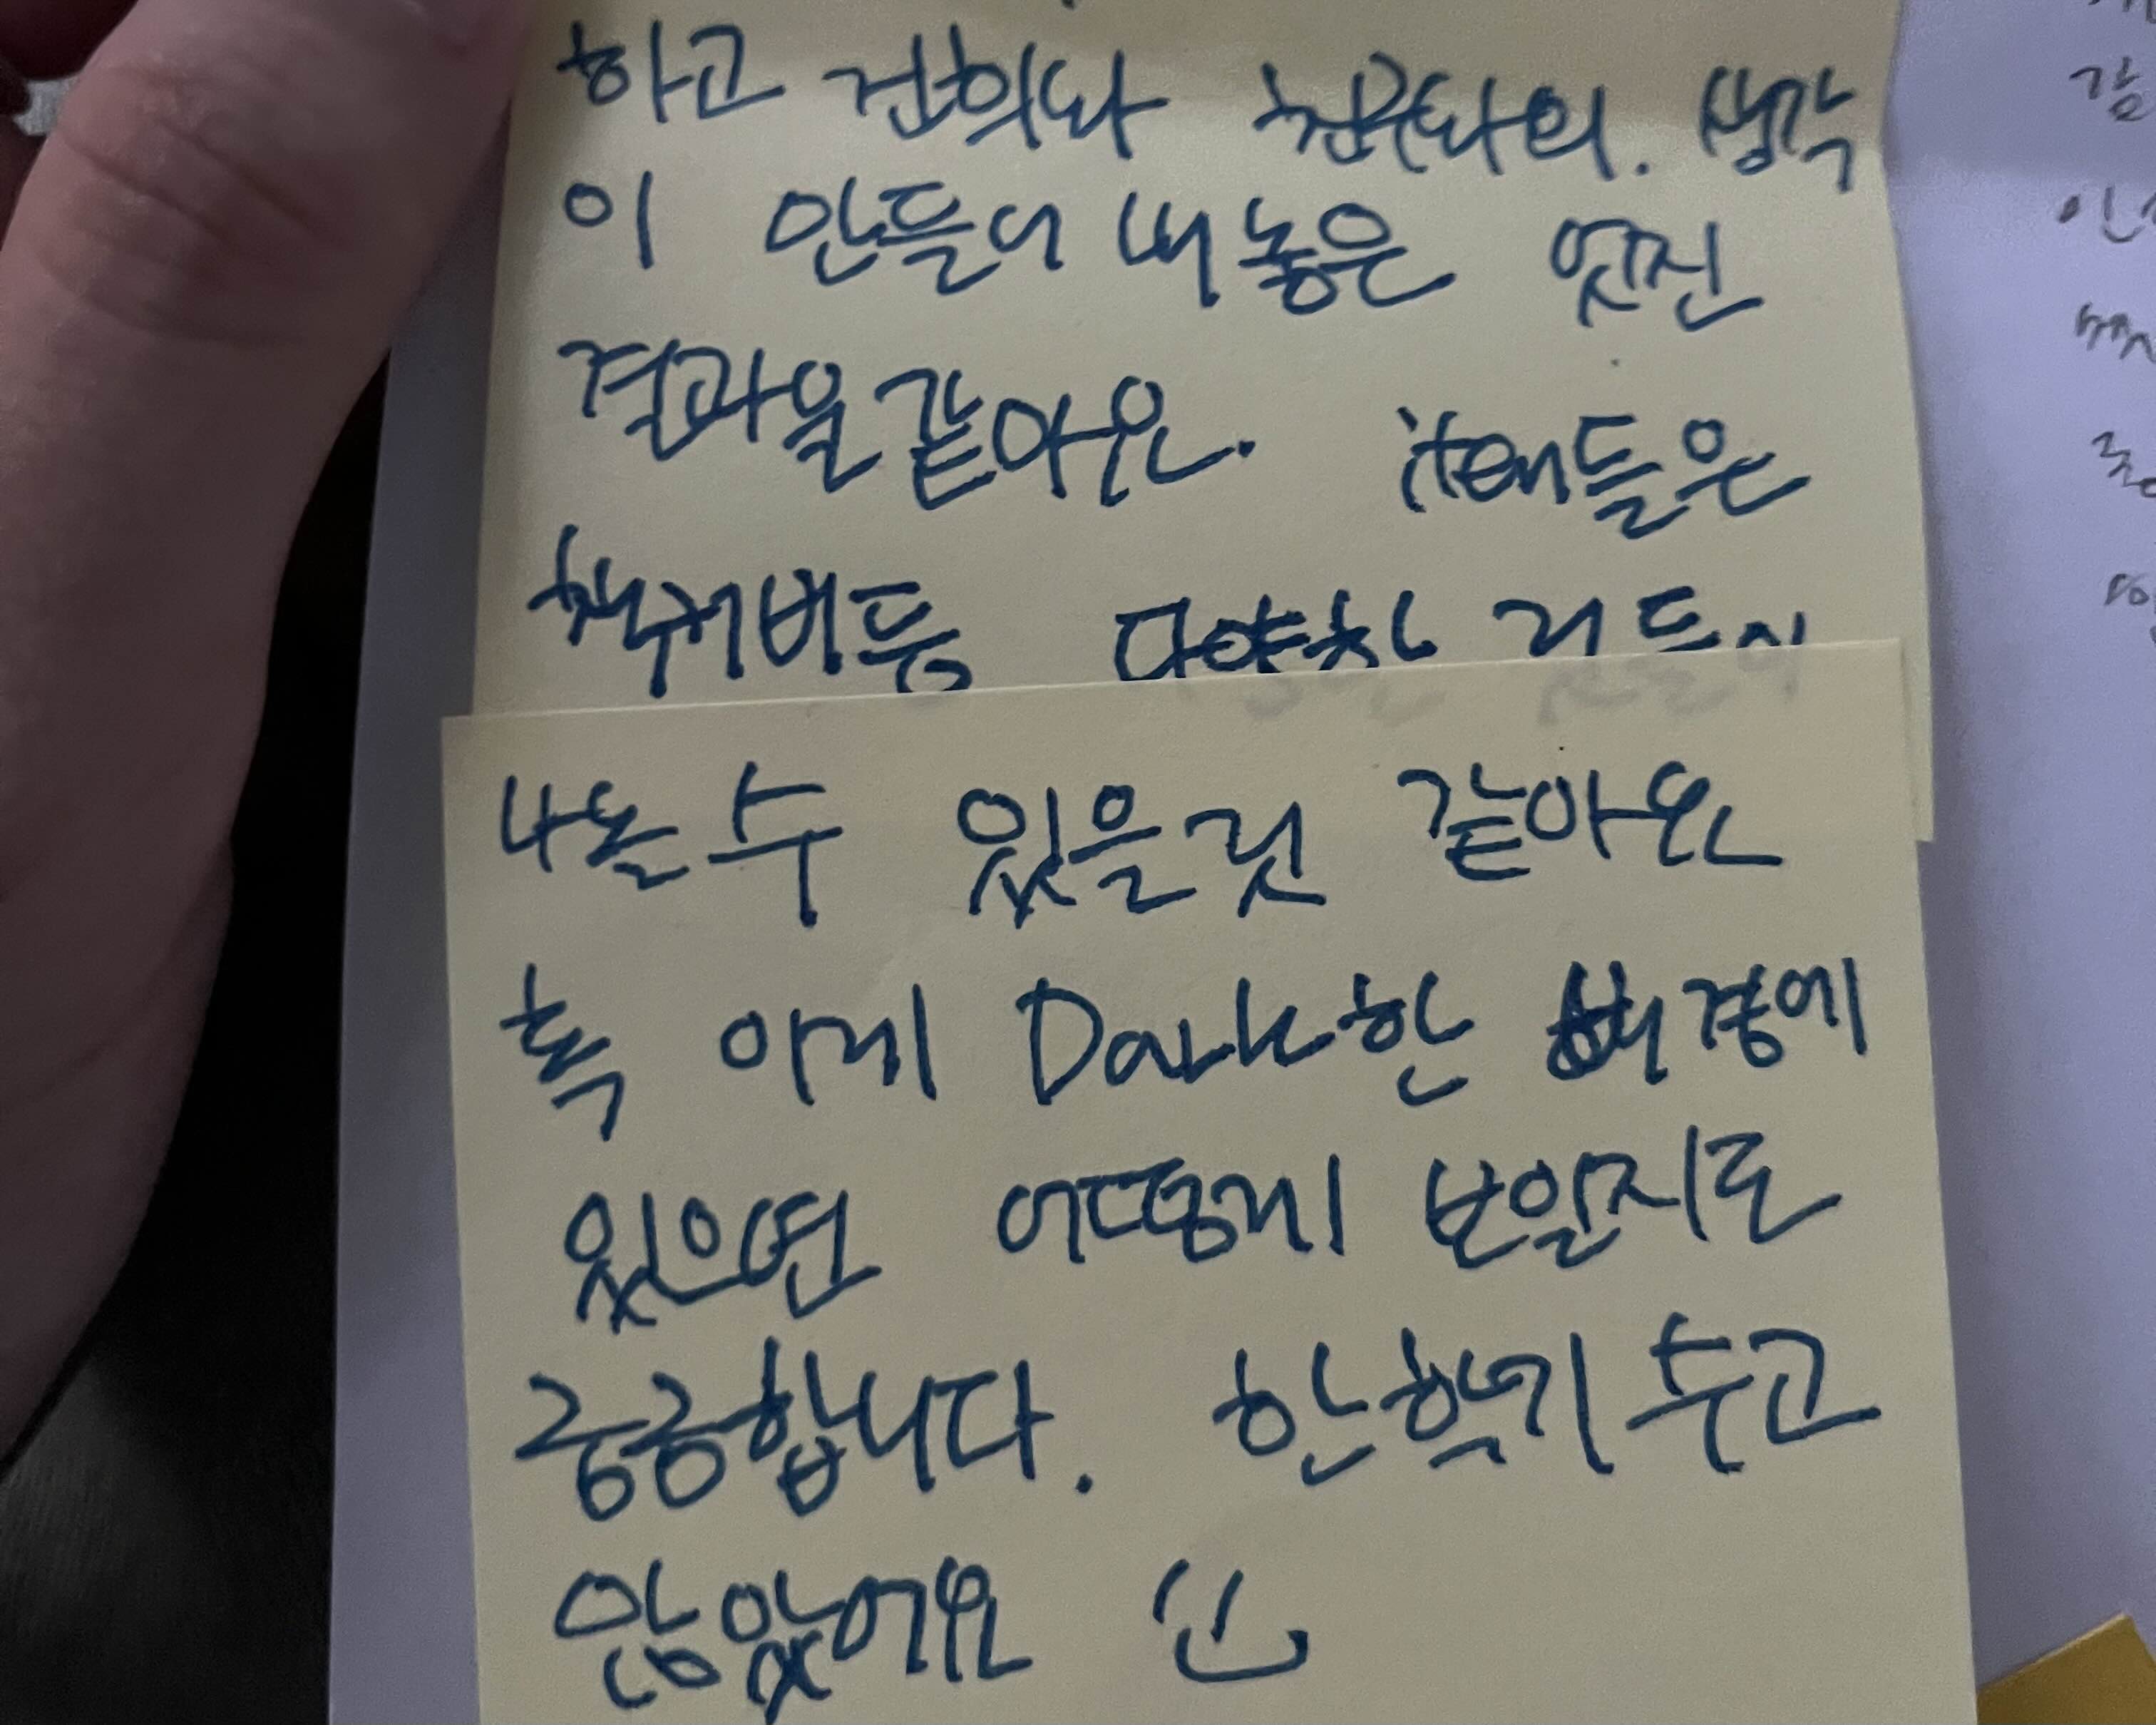 하고 건희와 친구와의. 생각
이 만들어 내놓은 멋진
결과물 같아요. item들은
책커버등 다양한 것들이
나올 수 있을것 같아요
혹 아예 Dark한 배경에
있으면 어떻게 보일지도
궁금합니다. 한학기 수고
많았어요